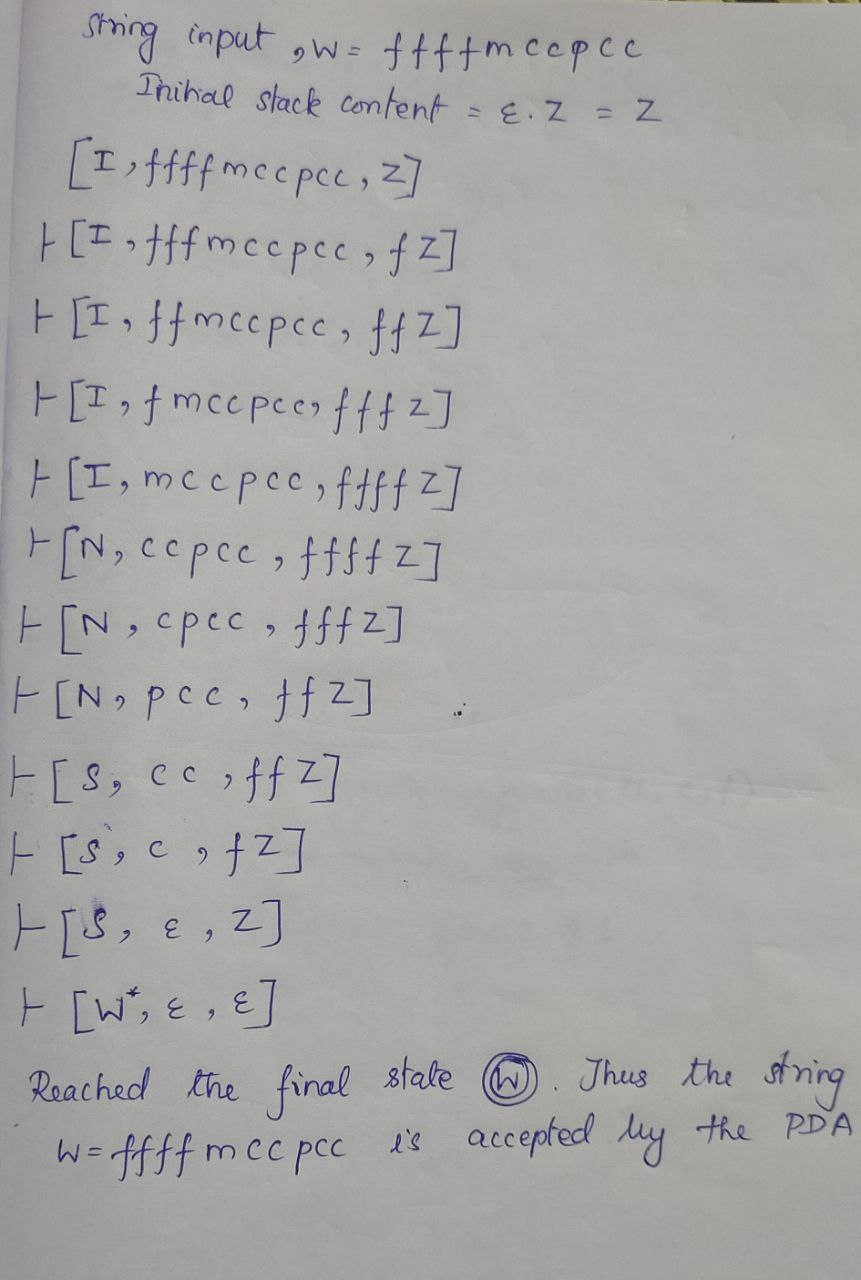 String input , W = ffffmccpcc
Initial stack content = ε.Z = Z
[I, ffffmccpcc, Z]
⊢ [I, fffmccpcc, fZ]
⊢ [I, ffmccpcc, ffZ]
⊢ [I, fmccpcc, fffZ]
⊢ [I, mccpcc, ffffZ]
⊢ [N, ccpcc, ffffZ]
⊢ [N, cpcc, fffZ]
⊢ [N, pcc, ffZ]
⊢ [S, cc, ffZ]
⊢ [S, c, fZ]
⊢ [S, ε, Z]
⊢ [W*, ε, ε]
Reached the final state W. Thus the string
W = ffffmccpcc is accepted by the PDA